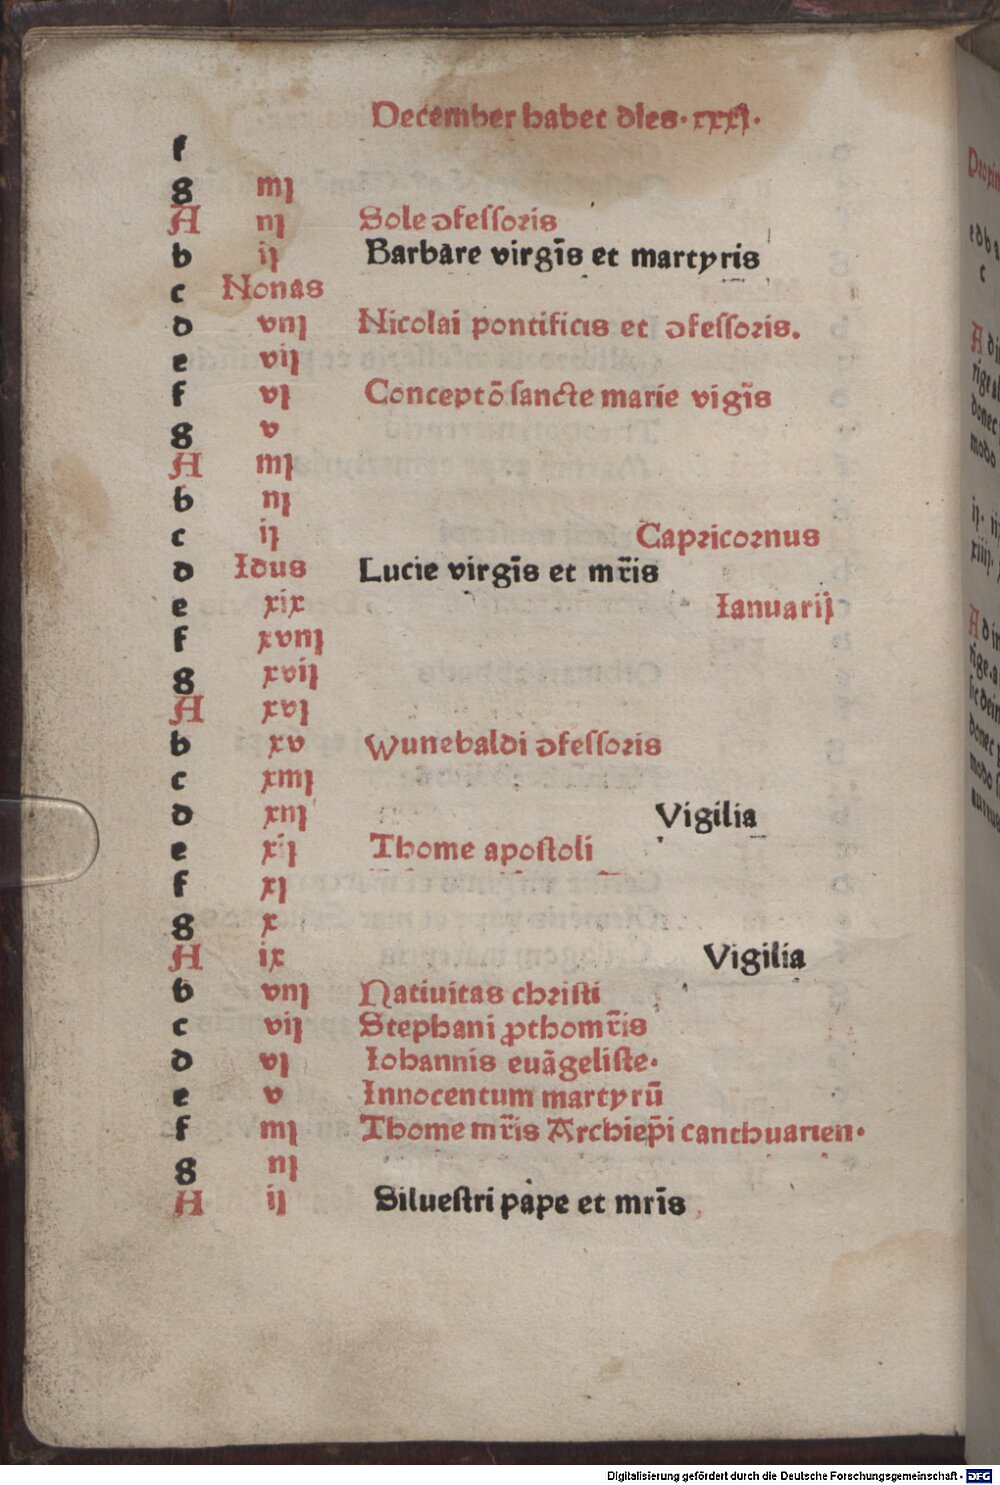 December habet dies · xxxj ·
f
g iiij
A iij Sole ↄfessoris
b ij Barbare virgīs et martyris
c Nonas
d viij Nicolai pontificis et ↄfessoris.
e vij
f vj Conceptō sancte marie vigīs
g v
A iiij
b iij
c ij Capricornus
d Idus Lucie virgīs et mr̄is
e xix Ianuarij
f xviij
g xvij
A xvj
b xv Wunebaldi ↄfessoris
c xiiij
d xiij Vigilia
e xij Thome apostoli
f xj
g x
A ix Vigilia
b viij Natiuitas christi
c vij Stephani ꝓthomr̄is
d vj Iohannis euāgeliste·
e v Innocentum martyrū
f iiij Thome mr̄is Archiep̄i canthuarien·
g iij
A ij Siluestri pape et mrīs
Digitalisierung gefördert durch die Deutsche Forschungsgemeinschaft - DFG